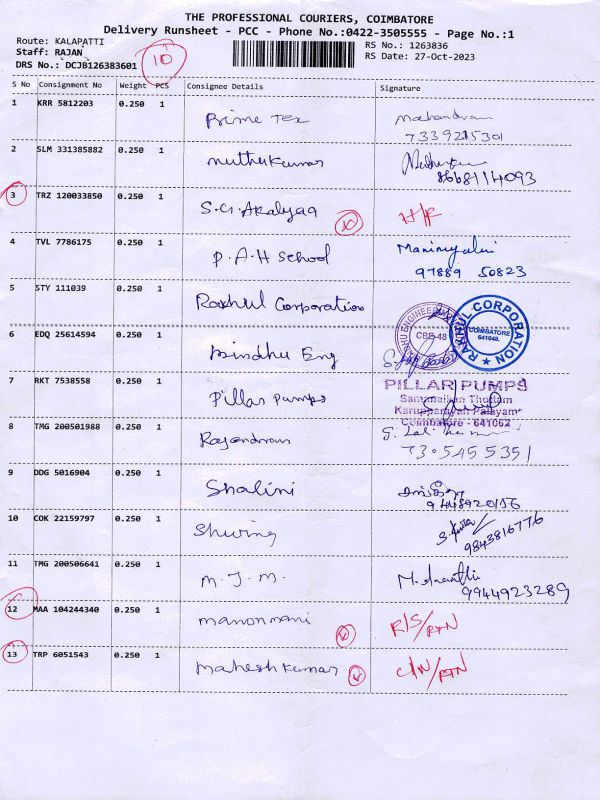 THE PROFESSIONAL COURIERS, COIMBATORE
Delivery Runsheet - PCC - Phone No.:0422-3505555 - Page No.:1
Route: KALAPATTI
Staff: RAJAN
DRS No.: DCJB126383601
10
RS No.: 1263836
RS Date: 27-Oct-2023
S No Consignment No Weight PCS Consignee Details Signature
1 KRR 5812203 0.250 1 Prime Tex
7339215301
2 SLM 331385882 0.250 1 muthukumar
8668114093
3 TRZ 120033850 0.250 1 S.G. Akalyaa
4 TVL 7786175 0.250 1 P.A.H School
97889 50823
5 STY 111039 0.250 1 Rakhul Corporation
RAKHUL CORPORATION
COIMBATORE
641048.
6 EDQ 25614594 0.250 1 Bindhu Eng
CBE-48
7 RKT 7538558 0.250 1 Pillar Pumps
PILLAR PUMPS
Samanaikan Thottam
Karuppanayan Palayam
Coimbatore - 641062
8 TMG 200501988 0.250 1 Rajandran
9 DDG 5016904 0.250 1 Shalini
10 COK 22159797 0.250 1 Shwing
9843816776
11 TMG 200506641 0.250 1 M.J.M.
9944923289
12 MAA 104244340 0.250 1 manonmani R/S/RTN
13 TRP 6051543 0.250 1 maheshkumar C/N/RTN